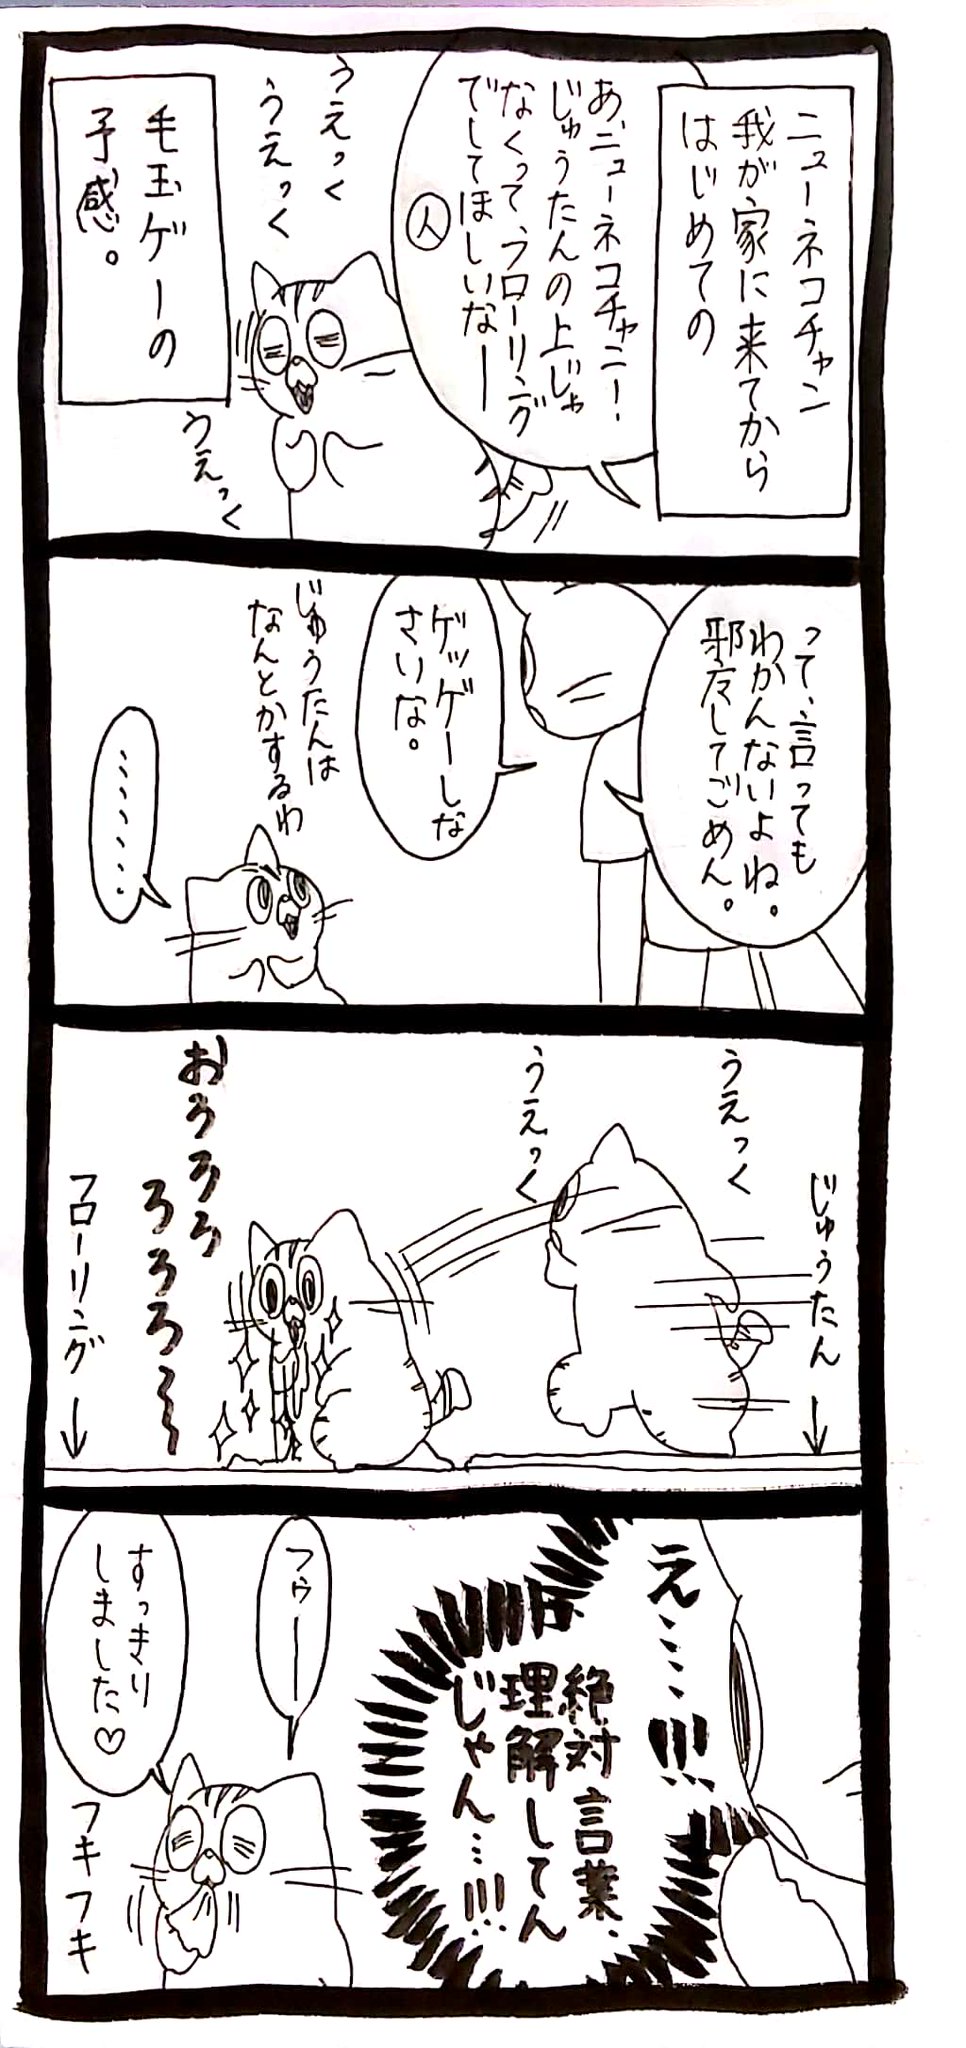 ニューネコチャン
我が家に来てから
はじめての
あ、ニューネコチャン!
じゅうたんの上じゃ
なくって、フローリング
でしてほしいなー
人
うえっく
うえっく
うえっく
毛玉ゲーの
予感。
って、言っても
わかんないよね。
邪魔してごめん。
ゲッゲーしな
さいな。
じゅうたんは
なんとかするわ
……
うえっく
うえっく
じゅうたん
↓
おうろろ
ろろろ〜〜
フローリング
↓
え……!!!
絶対言葉
理解してん
じゃん…!!!
フゥー
すっきり
しました♡
フキフキ